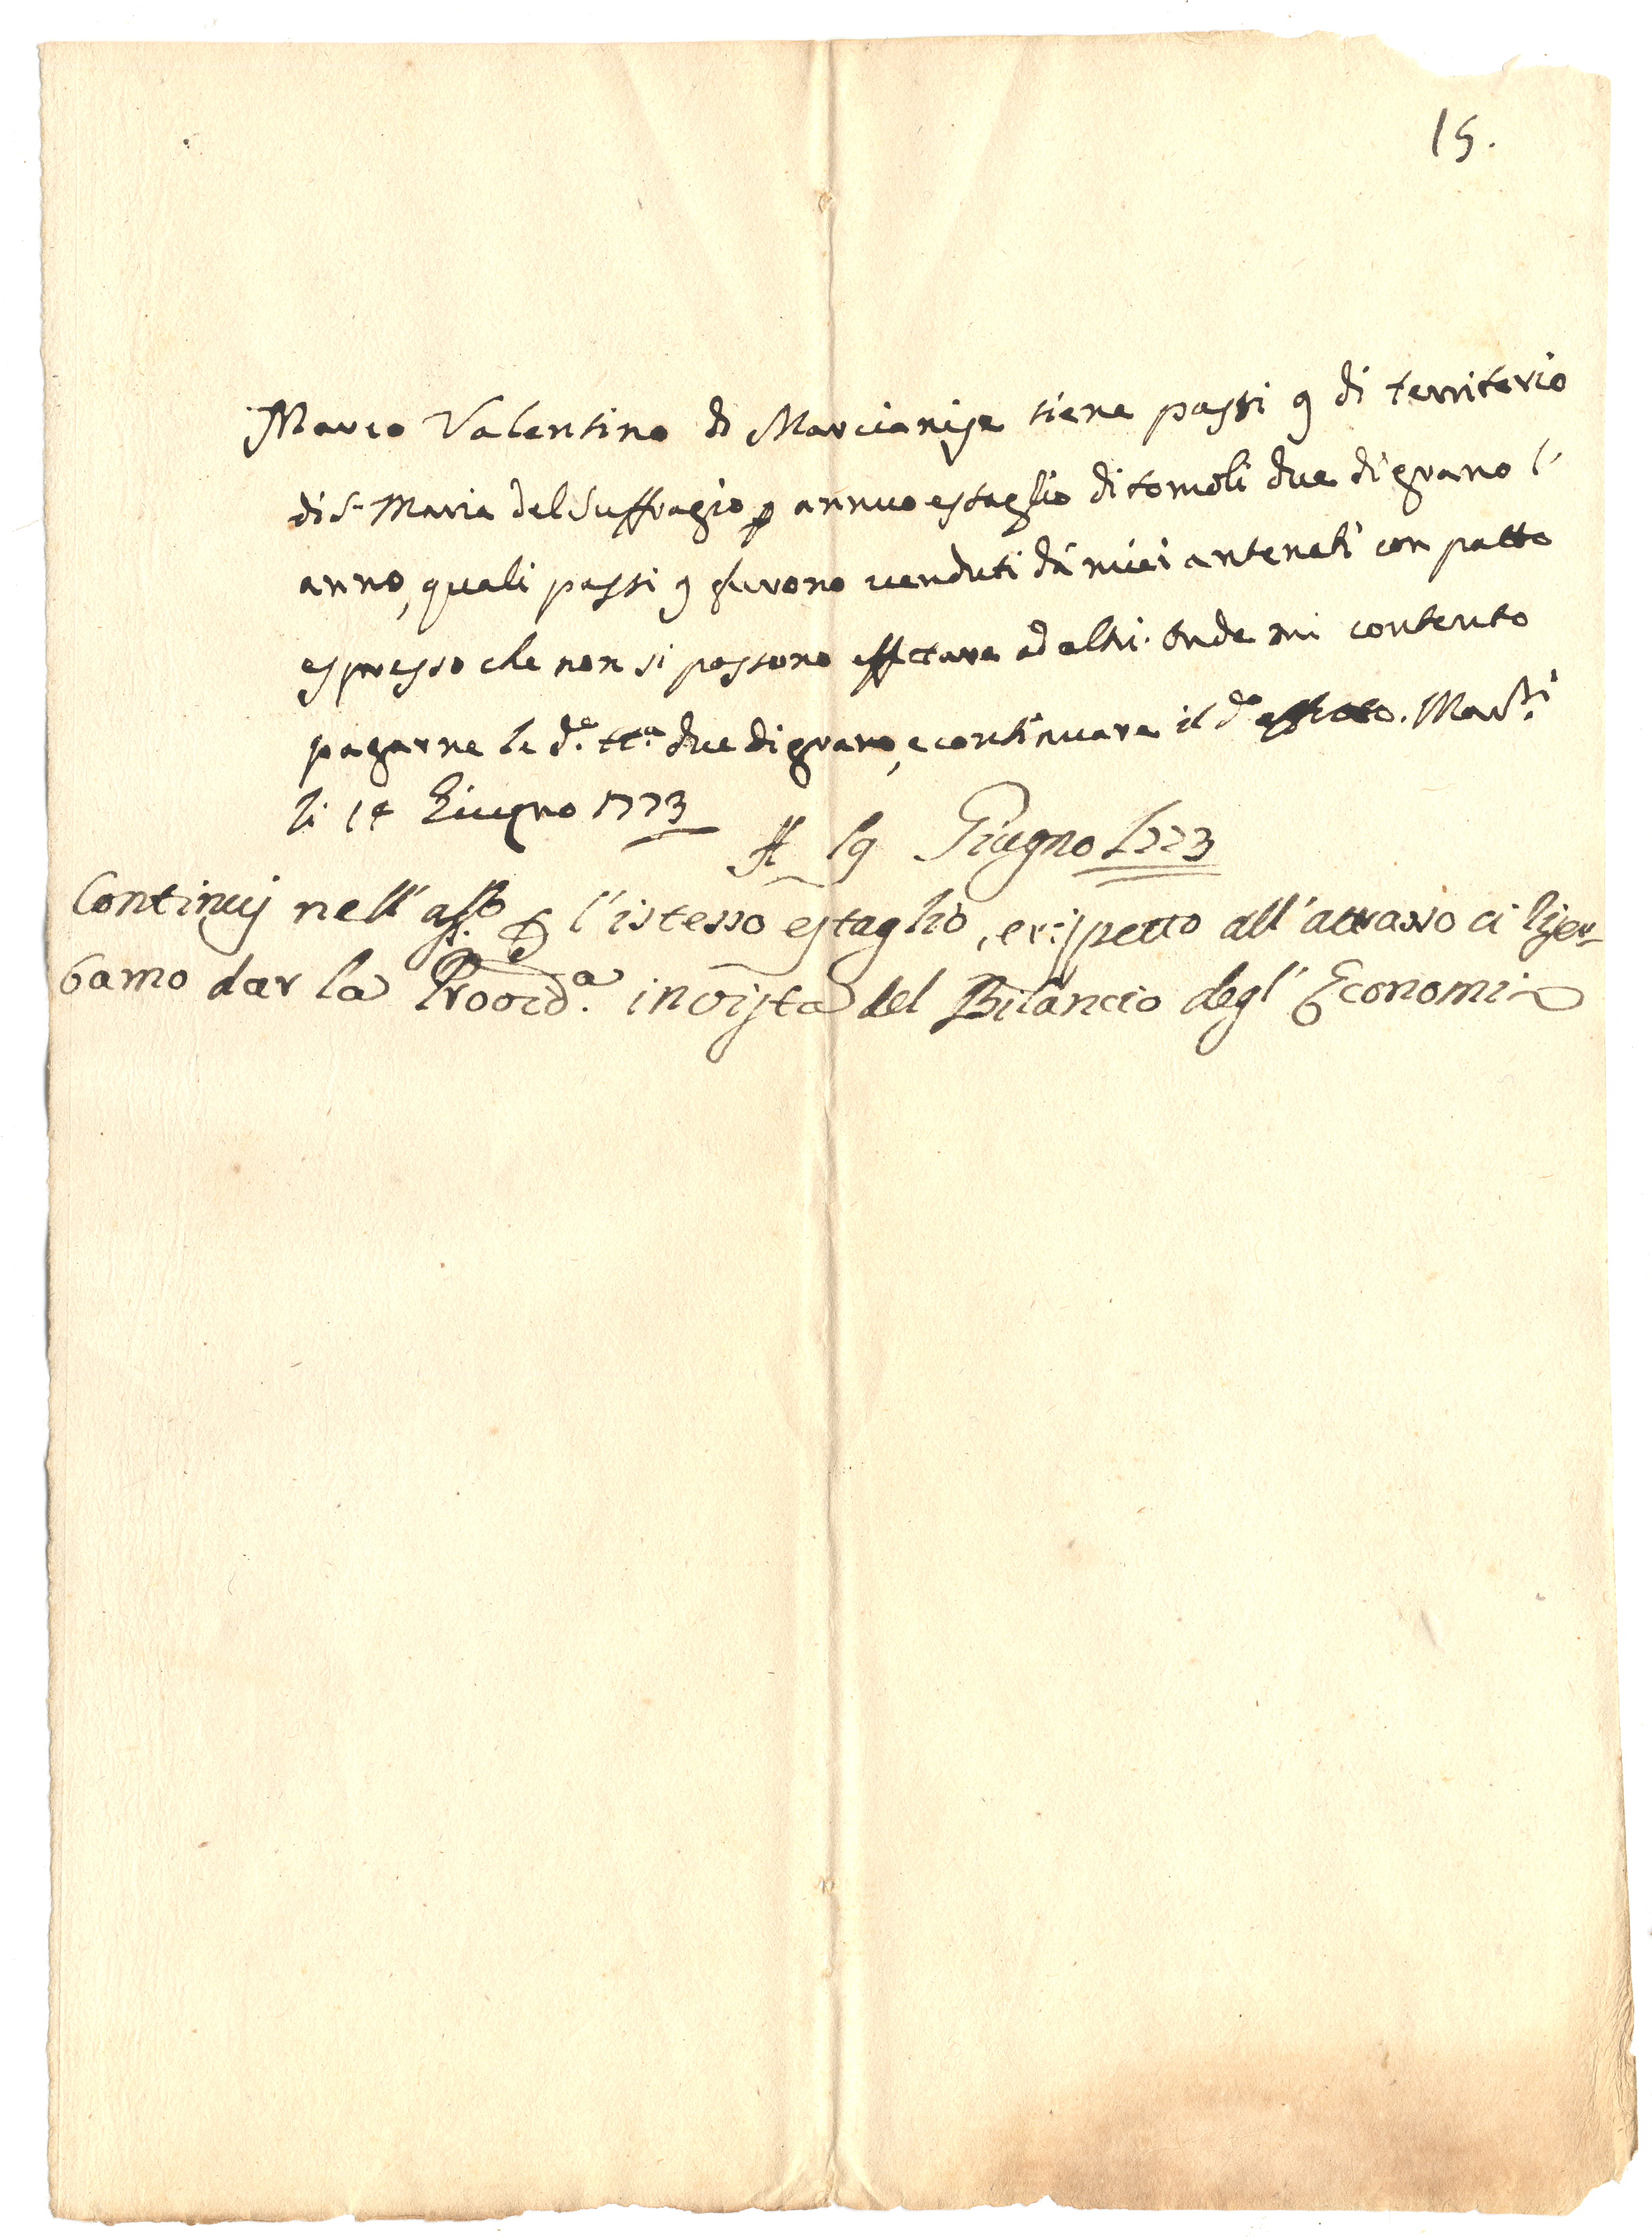 15.
Marco Valentino di Marcianise tiene passi 9 di territorio
di S. Maria del Suffragio p annuo estaglio di tomoli due di grano l'
anno, quali passi 9 furono venduti dà miei antenati con patto
espresso che non si possono affittare ad altri. Onde mi contento
pagarne le d.e tt.a due di grano, e continuare il d.o affitto. Mar.si
li 14 Giugno 1773
A 19 Giugno 1773
Continuj nell'aff.to p l'istesso estaglio, e rispetto all'attrasso ci riser-
bamo dar la Provid.a in vista del Bilancio degl'Economi